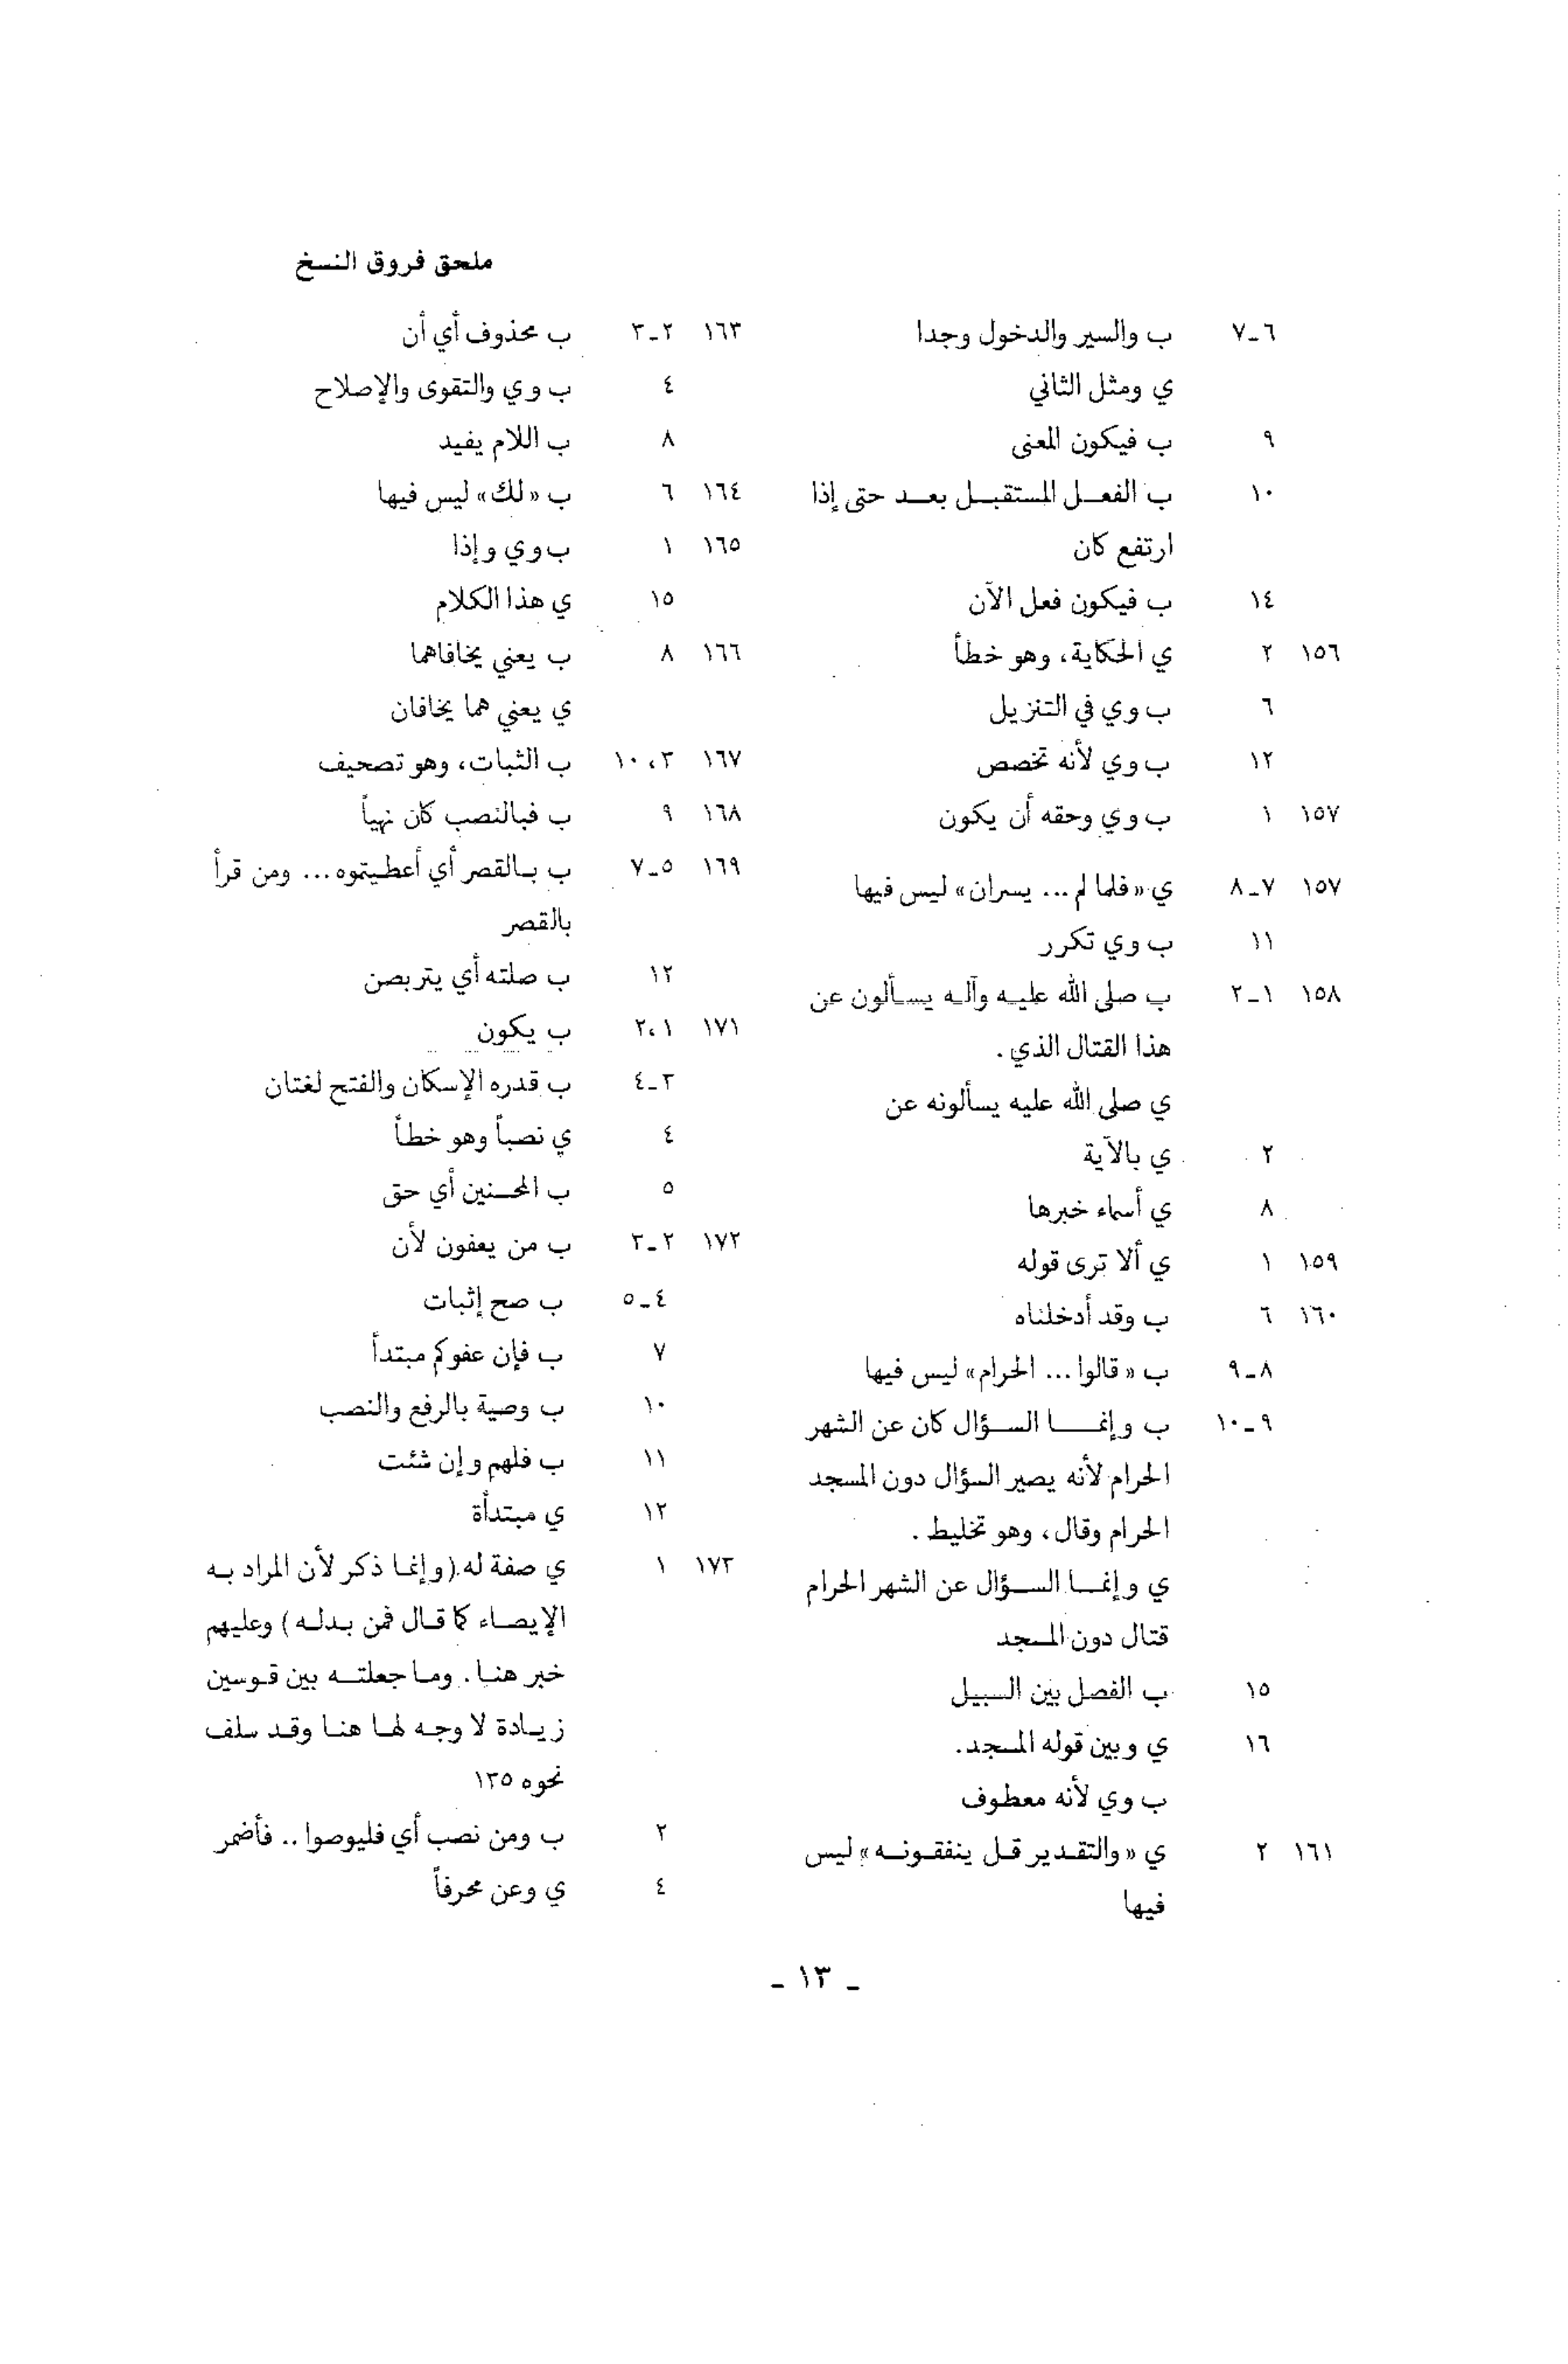 ملحق فروق النسخ
٦ـ٧ ب والسير والدخول وجدا
ي ومثل الثاني
٩ ب فيكون المعنى
١٠ ب الفعل المستقبل بعد حتى إذا
ارتفع كان
١٤ ب فيكون فعل الآن
١٥٦ ٢ ي الحكاية، وهو خطأ
٦ ب وي في التنزيل
١٢ ب وي لأنه تخصص
١٥٧ ١ ب وي وحقه أن يكون
١٥٧ ٧ـ٨ ي «فلما لم... يسران» ليس فيها
١١ ب وي تكرر
١٥٨ ١ـ٢ ب صلى الله عليه وآله يسألون عن
هذا القتال الذي.
ي صلى الله عليه يسألونه عن
٢ ي بالآية
٨ ي أسماء خبرها
١٥٩ ١ ي ألا ترى قوله
١٦٠ ٦ ب وقد أدخلناه
٨ـ٩ ب «قالوا... الحرام» ليس فيها
٩ـ١٠ ب وإنما السؤال كان عن الشهر
الحرام لأنه يصير السؤال دون المسجد
الحرام وقال، وهو تخليط.
ي وإنما السؤال عن الشهر الحرام
قتال دون المسجد
١٥ ب الفصل بين السبيل
١٦ ي وبين قوله المسجد.
ب وي لأنه معطوف
١٦١ ٢ ي «والتقدير قل ينفقونه» ليس
فيها
١٦٣ ٢ـ٣ ب محذوف أي أن
٤ ب وي والتقوى والإصلاح
٨ ب اللام يفيد
١٦٤ ٦ ب «لك» ليس فيها
١٦٥ ١ ب وي وإذا
١٥ ي هذا الكلام
١٦٦ ٨ ب يعني يخافاهما
ي يعني هما يخافان
١٦٧ ٣، ١٠ ب الثبات، وهو تصحيف
١٦٨ ٩ ب فبالنصب كان نهياً
١٦٩ ٥ـ٧ ب بالقصر أي أعطيتموه... ومن قرأ
بالقصر
١٢ ب صلته أي يتربصن
١٧١ ١، ٢ ب يكون
٣ـ٤ ب قدره الإسكان والفتح لغتان
٤ ي نصباً وهو خطأ
٥ ب المحسنين أي حق
١٧٢ ٢ـ٣ ب من يعفون لأن
٤ـ٥ ب صح إثبات
٧ ب فإن عفوكم مبتدأ
١٠ ب وصية بالرفع والنصب
١١ ب فلهم وإن شئت
١٢ ي مبتدأة
١٧٣ ١ ي صفة له (وإنما ذكر لأن المراد به
الإيصاء كما قال فمن بدله) وعليهم
خبر هنا. وما جعلته بين قوسين
زيادة لا وجه لها هنا وقد سلف
نحوه ١٣٥
٢ ب ومن نصب أي فليوصوا.. فأضمر
٤ ي وعن محرفاً
ـ ١٣ ـ